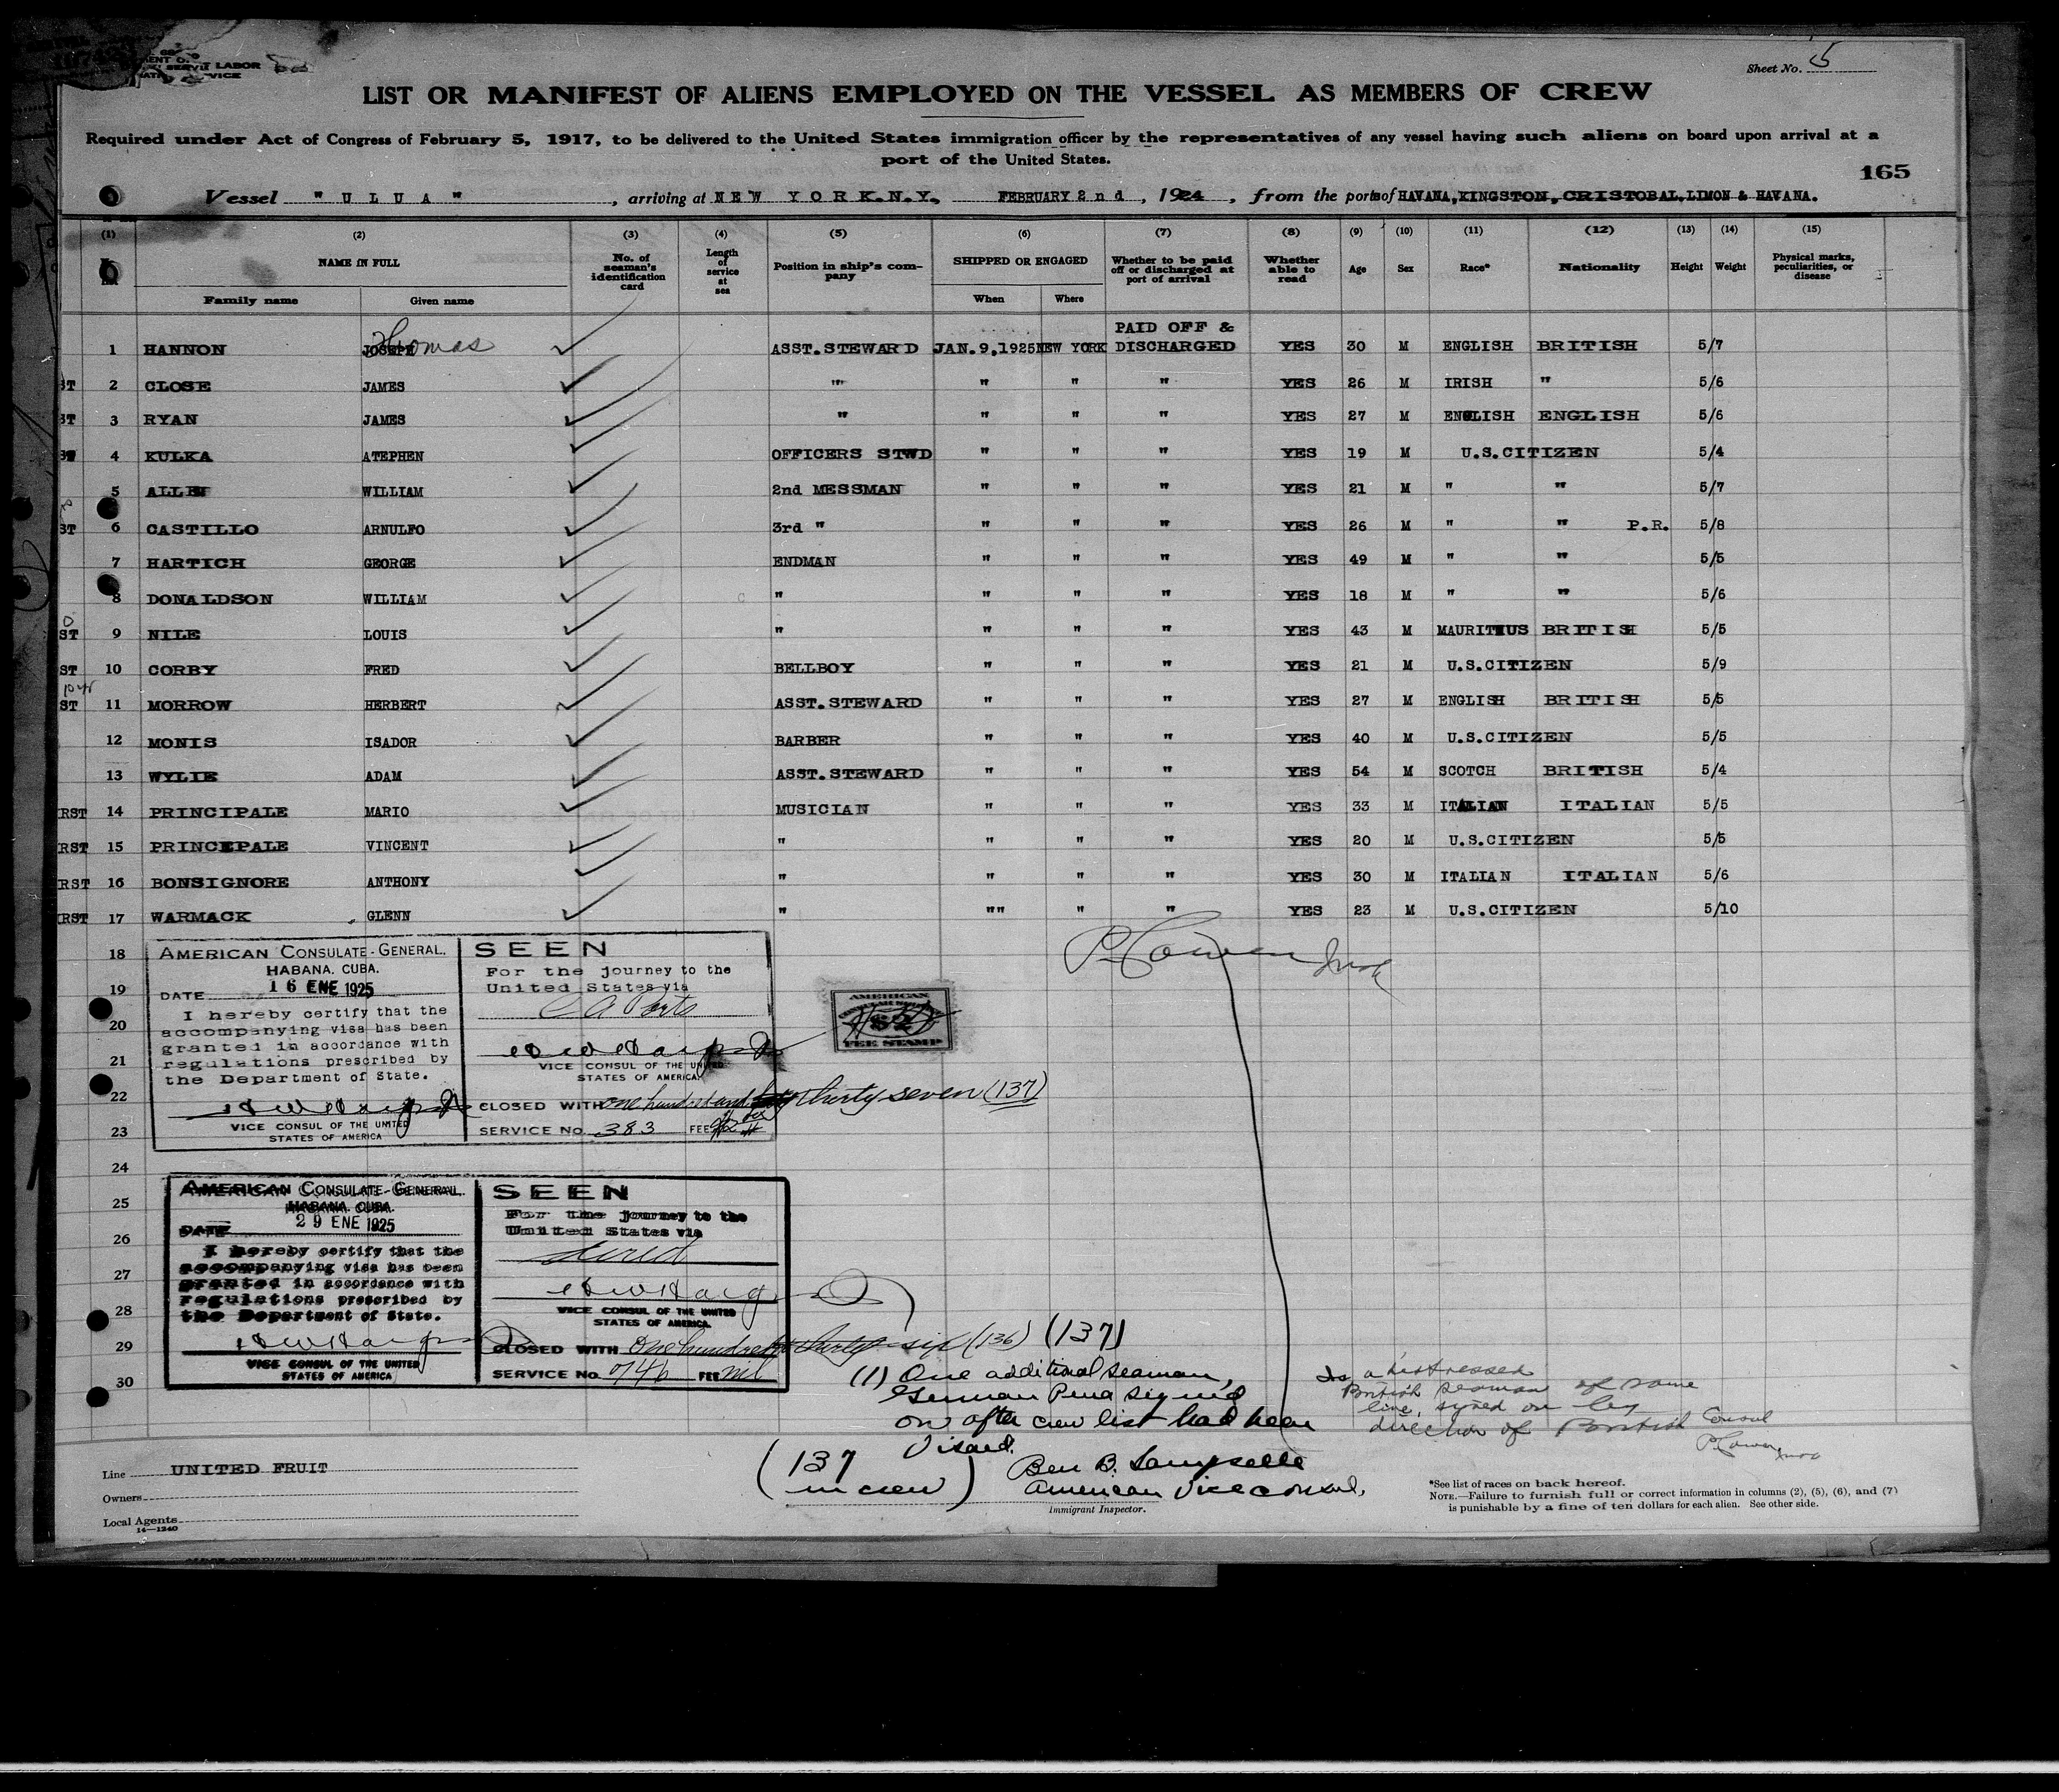 Sheet No. 5
LIST OR MANIFEST OF ALIENS EMPLOYED ON THE VESSEL AS MEMBERS OF CREW
Required under Act of Congress of February 5, 1917, to be delivered to the United States immigration officer by the representatives of any vessel having such aliens on board upon arrival at a
port of the United States.
165
Vessel " U L U A " , arriving at NEW YORK.N.Y. FEBRUARY 2nd , 1924 , from the ports of HAVANA, KINGSTON, CRISTOBAL, LIMON & HAVANA.
(1) (2) (3) (4) (5) (6) (7) (8) (9) (10) (11) (12) (13) (14) (15)
NAME IN FULL No. of seaman's identification card Length of service at sea Position in ship's company SHIPPED OR ENGAGED Whether to be paid off or discharged at port of arrival Whether able to read Age Sex Race* Nationality Height Weight Physical marks, peculiarities, or disease
Family name Given name When Where
PAID OFF &
1 HANNON JOSEPH Thomas ASST.STEWARD JAN.9,1925 NEW YORK DISCHARGED YES 30 M ENGLISH BRITISH 5/7
ST 2 CLOSE JAMES "" " " " YES 26 M IRISH " 5/6
ST 3 RYAN JAMES " " " " YES 27 M ENGLISH ENGLISH 5/6
4 KULKA ATEPHEN OFFICERS STWD " " " YES 19 M U.S.CITIZEN 5/4
5 ALLEN WILLIAM 2nd MESSMAN " " " YES 21 M " " 5/7
ST 6 CASTILLO ARNULFO 3rd " " " " YES 26 M " " P.R. 5/8
7 HARTICH GEORGE ENDMAN " " " YES 49 M " " 5/5
8 DONALDSON WILLIAM " " " " YES 18 M " " 5/6
ST 9 NILE LOUIS " " " " YES 43 M MAURITIUS BRITISH 5/5
ST 10 CORBY FRED BELLBOY " " " YES 21 M U.S.CITIZEN 5/9
ST 11 MORROW HERBERT ASST.STEWARD " " " YES 27 M ENGLISH BRITISH 5/5
12 MONIS ISADOR BARBER " " " YES 40 M U.S.CITIZEN 5/5
13 WYLIE ADAM ASST.STEWARD " " " YES 54 M SCOTCH BRITISH 5/4
RST 14 PRINCIPALE MARIO MUSICIAN " " " YES 33 M ITALIAN ITALIAN 5/5
RST 15 PRINCEPALE VINCENT " " " " YES 20 M U.S.CITIZEN 5/5
RST 16 BONSIGNORE ANTHONY " " " " YES 30 M ITALIAN ITALIAN 5/6
RST 17 WARMACK GLENN " "" " " YES 23 M U.S.CITIZEN 5/10
18
19
20
21
22
23
24
25
26
27
28
29
30
AMERICAN CONSULATE-GENERAL.
HABANA. CUBA.
DATE 16 ENE 1925
I hereby certify that the
accompanying visa has been
granted in accordance with
regulations prescribed by
the Department of State.
VICE CONSUL OF THE UNITED
STATES OF AMERICA
SEEN
For the journey to the
United States via
C A Ports
VICE CONSUL OF THE UNITED
STATES OF AMERICA.
CLOSED WITH one hundred and thirty seven (137)
SERVICE No. 383 FEE
AMERICAN
FEE STAMP
P. Cowen
AMERICAN CONSULATE-GENERAL.
HABANA. CUBA.
DATE 29 ENE 1925
I hereby certify that the
accompanying visa has been
granted in accordance with
regulations prescribed by
the Department of State.
VICE CONSUL OF THE UNITED
STATES OF AMERICA
SEEN
For the journey to the
United States via
direct
VICE CONSUL OF THE UNITED
STATES OF AMERICA.
CLOSED WITH One hundred thirty-six (136) (137)
SERVICE No. 0746 FEE nil
(1) One additional seaman,
German Pena signed
on after crew list had been
visaed.
(137
in crew)
American Vice Consul.
Is a distressed
British seaman of same
line, signed on by
direction of British Consul
P. Cowen
Line UNITED FRUIT
Owners
Local Agents
14—1240
Immigrant Inspector.
*See list of races on back hereof.
NOTE.—Failure to furnish full or correct information in columns (2), (5), (6), and (7)
is punishable by a fine of ten dollars for each alien. See other side.